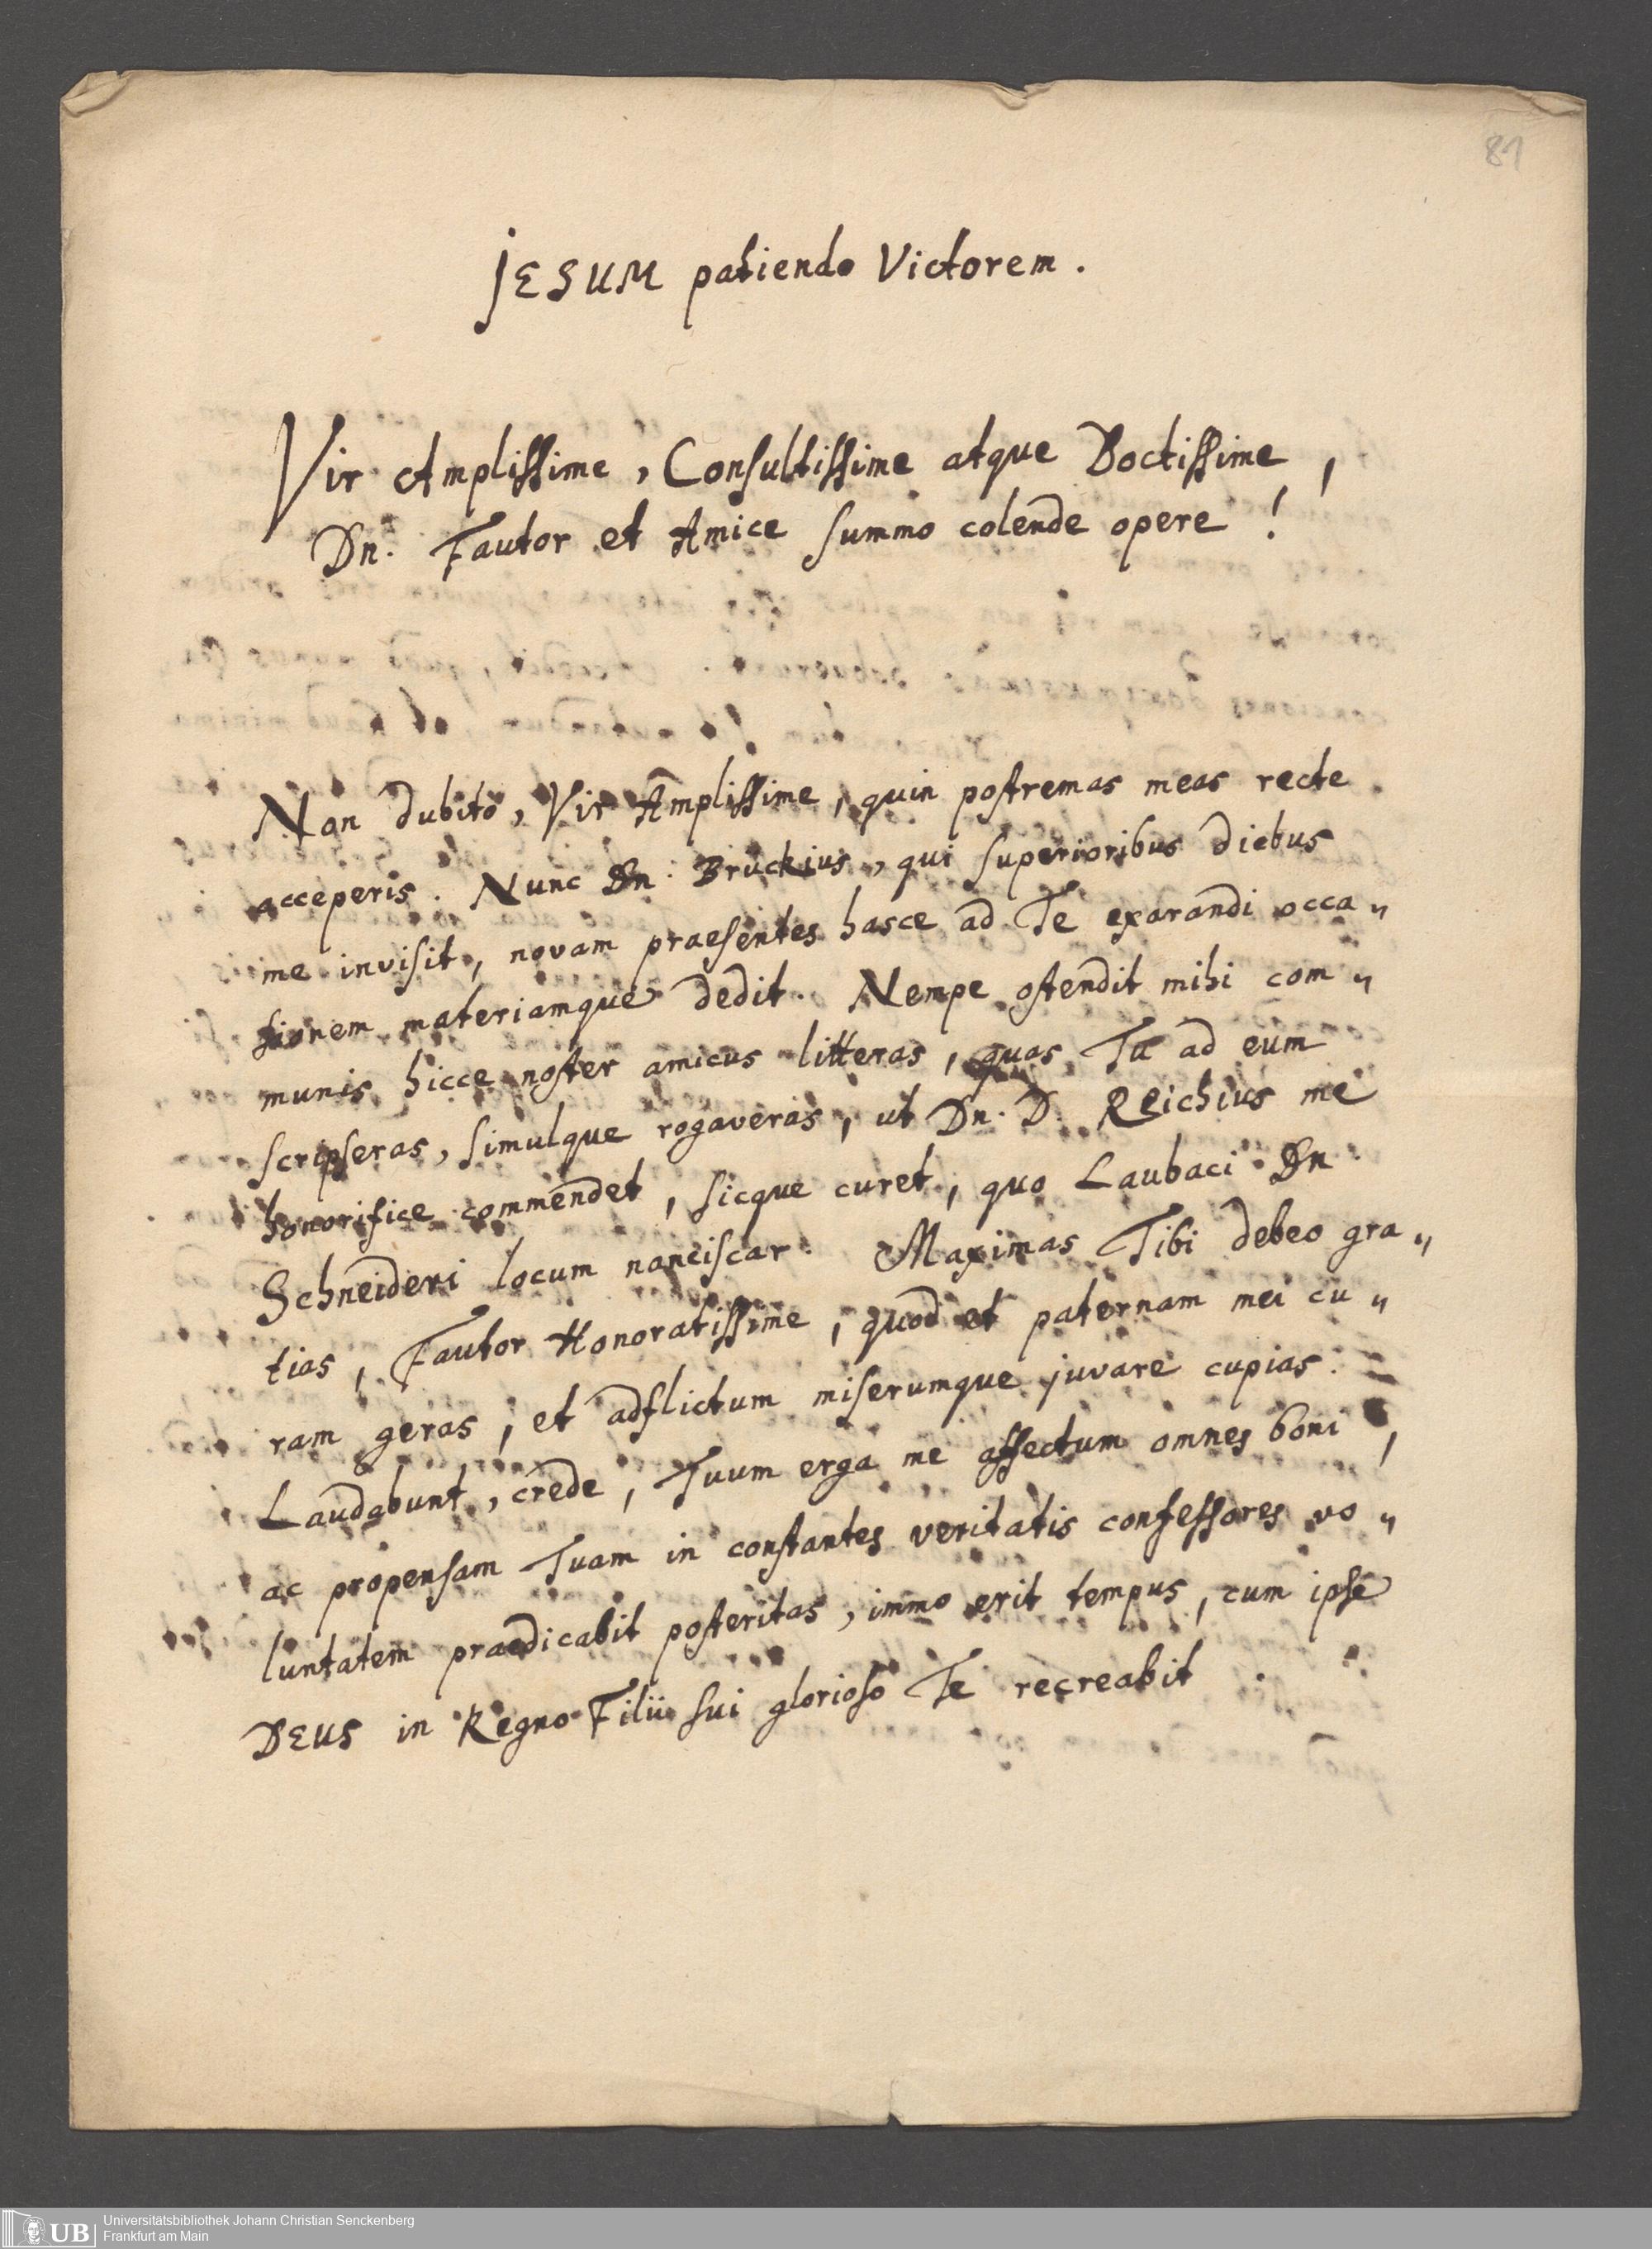 81
JESUM patiendo Victorem.
Vir Amplissime, Consultissime atque Doctissime,
Dn. Fautor et Amice summo colende opere!
Non dubito, Vir Amplissime, quin postremas meas recte
acceperis. Nunc Dn. Bruckius, qui superioribus diebus
me invisit, novam praesentes hasce ad Te exarandi occa„
sionem materiamque dedit. Nempe ostendit mihi com„
munis hicce noster amicus litteras, quas Tu ad eum
scripseras, simulque rogaveras, ut Dn. D. Reichius me
honorifice commendet, sicque curet, quo Laubaci Dn.
Schneideri locum nanciscar. Maximas Tibi debeo gra„
tias, Fautor Honoratissime, quod et paternam mei cu„
ram geras, et adflictum miserumque juvare cupias.
Laudabunt, crede, Tuum erga me affectum omnes boni,
ac propensam Tuam in constantes veritatis confessores vo„
luntatem praedicabit posteritas, immo erit tempus, cum ipse
DEUS in Regno Filii sui glorioso Te recreabit
UB
Universitätsbibliothek Johann Christian Senckenberg
Frankfurt am Main